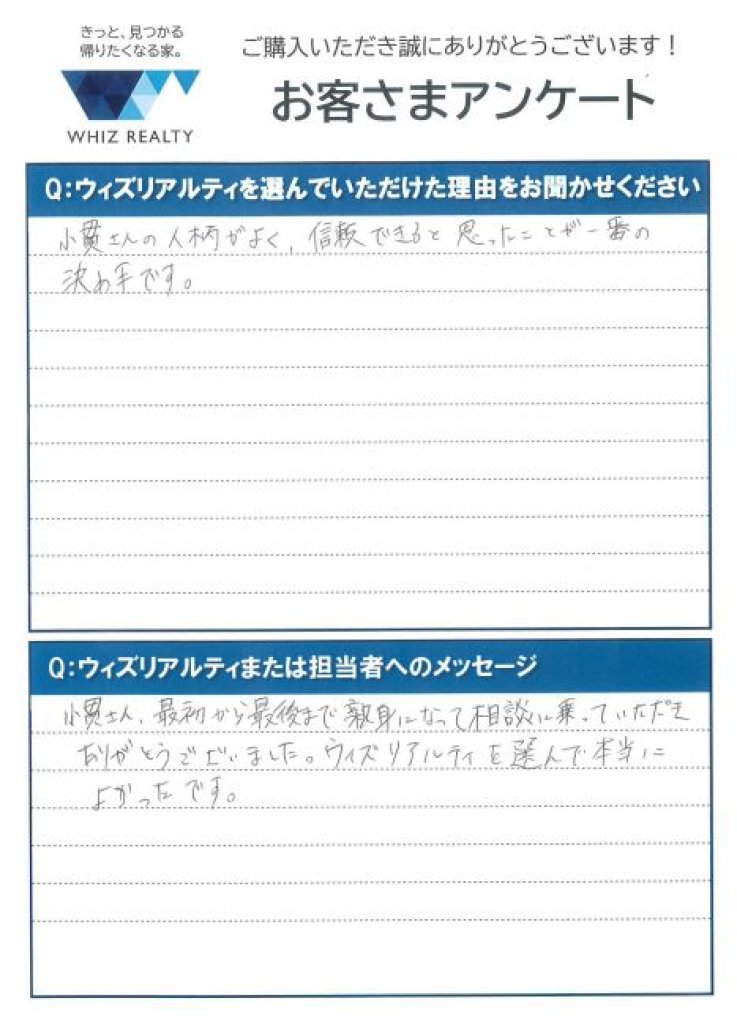 きっと、見つかる
帰りたくなる家。
WHIZ REALTY
ご購入いただき誠にありがとうございます！
お客さまアンケート
Q：ウィズリアルティを選んでいただけた理由をお聞かせください
小貫さんの人柄がよく、信頼できると思ったことが一番の
決め手です。
Q：ウィズリアルティまたは担当者へのメッセージ
小貫さん、最初から最後まで親身になって相談に乗っていただき
ありがとうございました。ウィズリアルティを選んで本当に
よかったです。